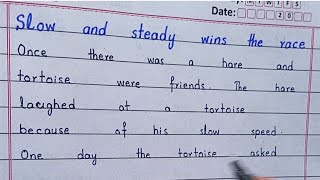 Date:
20
Slow and steady wins the race
Once there was a hare and
tortoise were friends. The hare
laughed at a tortoise
because of his slow speed.
One day the tortoise asked